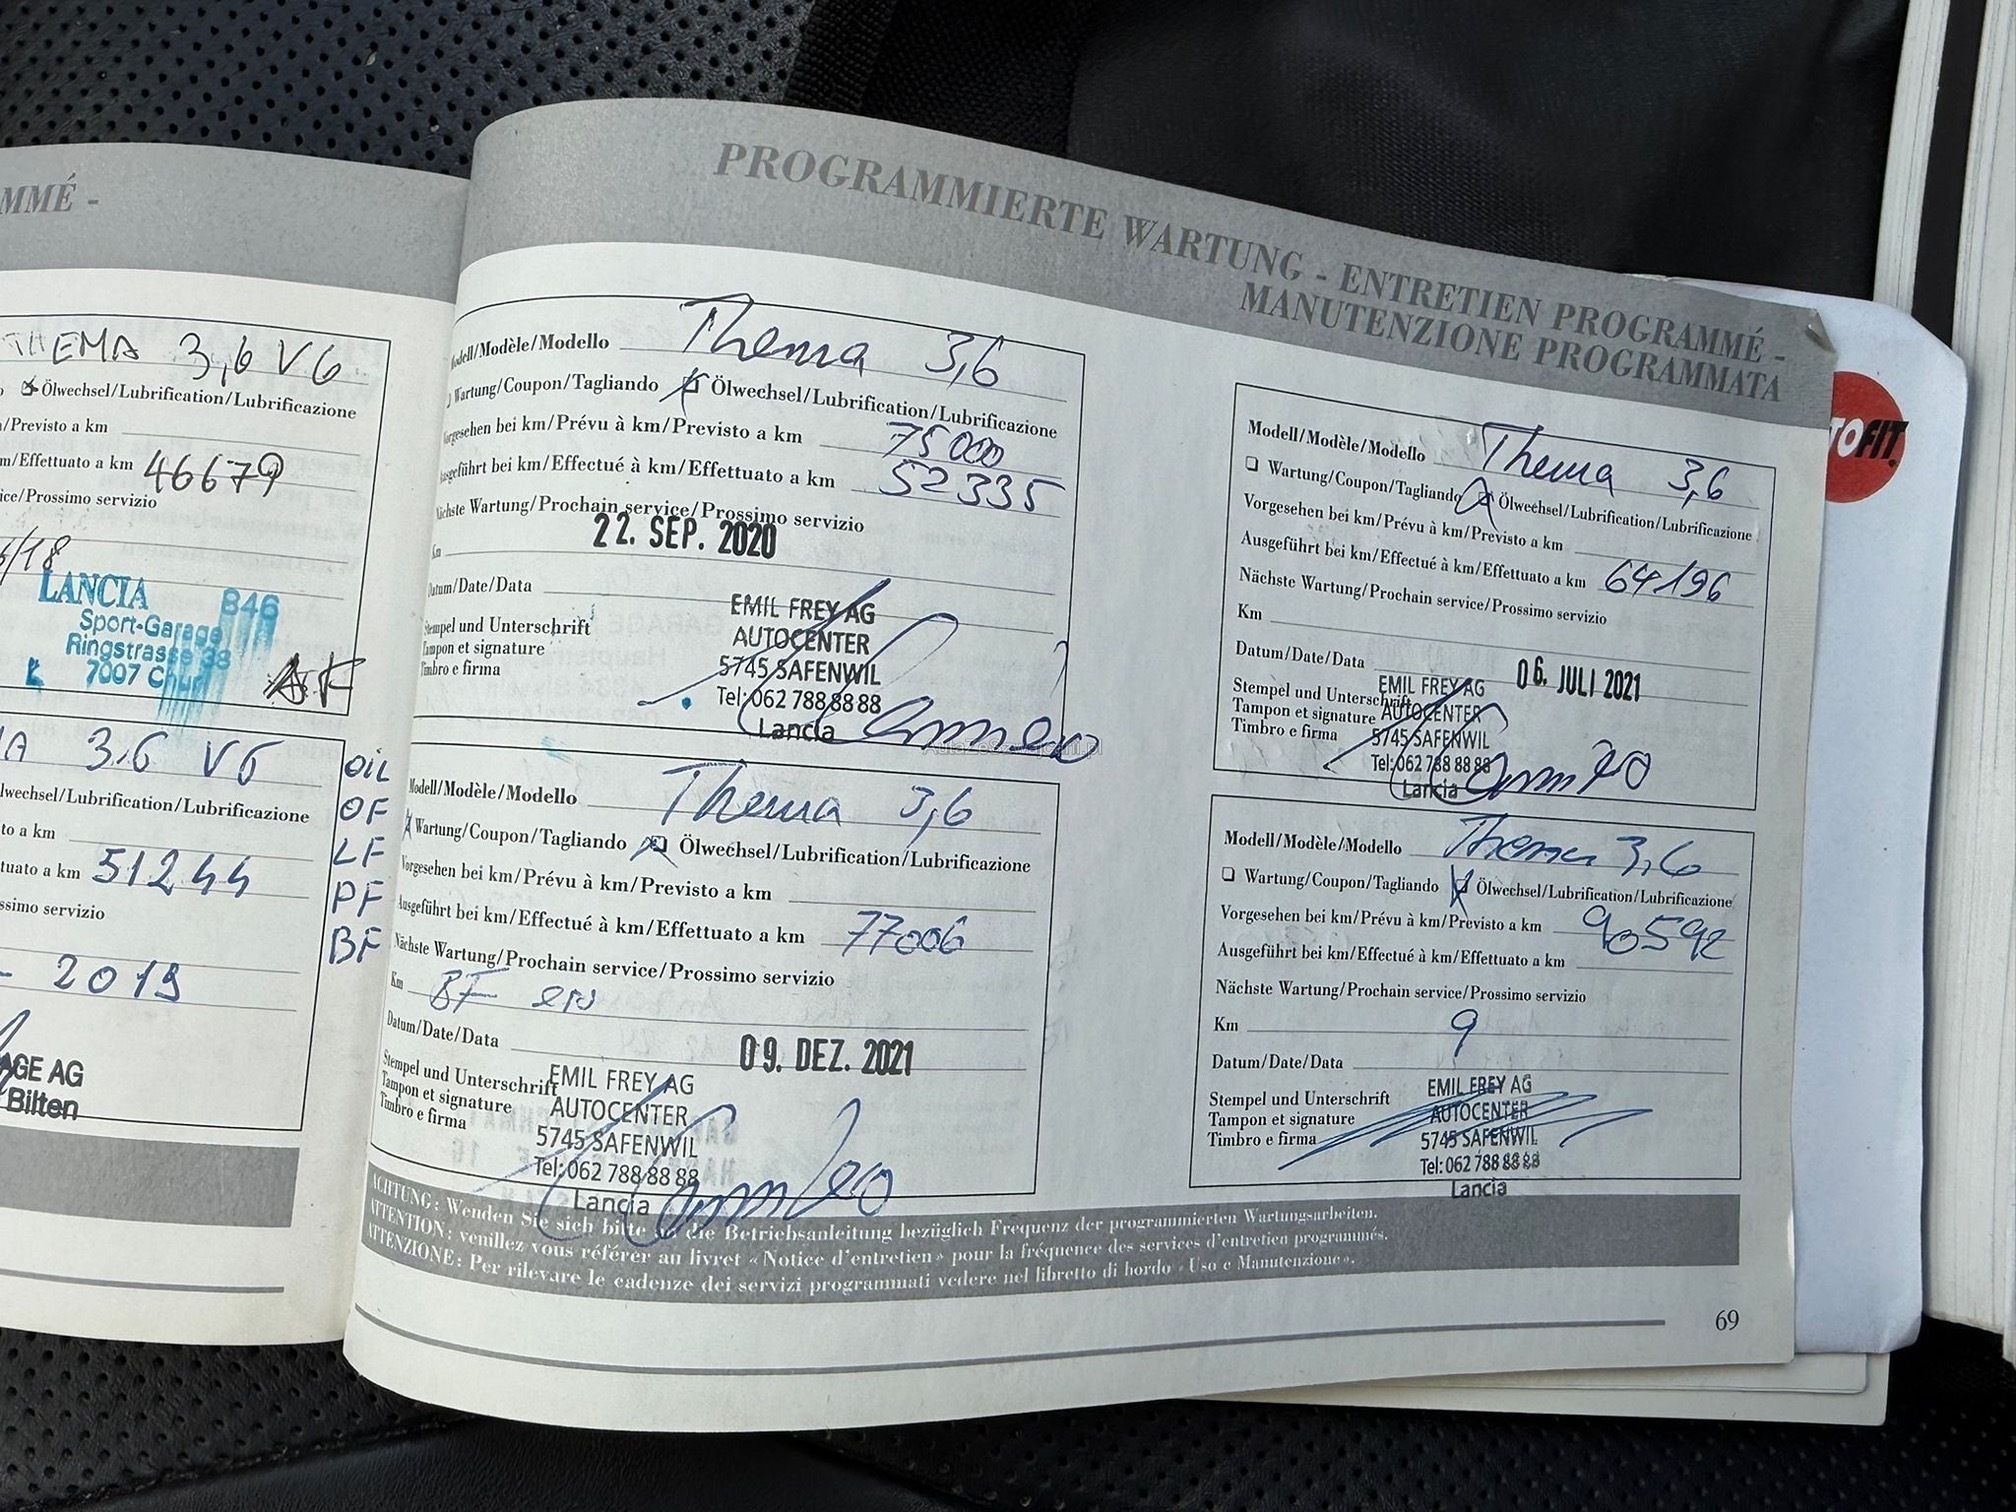 MMÉ -
THEMA 3,6 V6
Ölwechsel/Lubrification/Lubrificazione
/Previsto a km
m/Effettuato a km 46679
ice/Prossimo servizio
/18
LANCIA B46
Sport-Garage
Ringstrasse 38
7007 Chur
A 3.6 V6
OIL
OF
LF
PF
BF
lwechsel/Lubrification/Lubrificazione
to a km
tuato a km 51244
ssimo servizio
- 2019
AGE AG
Bilten
PROGRAMMIERTE WARTUNG - ENTRETIEN PROGRAMMÉ -
MANUTENZIONE PROGRAMMATA
Modell/Modèle/Modello Thema 3,6
Wartung/Coupon/Tagliando Ölwechsel/Lubrification/Lubrificazione
Vorgesehen bei km/Prévu à km/Previsto a km 75000
Ausgeführt bei km/Effectué à km/Effettuato a km 52335
Nächste Wartung/Prochain service/Prossimo servizio
Km
22. SEP. 2020
Datum/Date/Data
Stempel und Unterschrift
Tampon et signature
Timbro e firma
EMIL FREY AG
AUTOCENTER
5745 SAFENWIL
Tel: 062 788 88 88
Lancia
Modell/Modèle/Modello Thema 3,6
Wartung/Coupon/Tagliando Ölwechsel/Lubrification/Lubrificazione
Vorgesehen bei km/Prévu à km/Previsto a km
Ausgeführt bei km/Effectué à km/Effettuato a km 77006
Nächste Wartung/Prochain service/Prossimo servizio
Km BF
Datum/Date/Data 09. DEZ. 2021
Stempel und Unterschrift
Tampon et signature
Timbro e firma
EMIL FREY AG
AUTOCENTER
5745 SAFENWIL
Tel: 062 788 88 88
Lancia
Modell/Modèle/Modello Thema 3,6
Wartung/Coupon/Tagliando Ölwechsel/Lubrification/Lubrificazione
Vorgesehen bei km/Prévu à km/Previsto a km
Ausgeführt bei km/Effectué à km/Effettuato a km 64196
Nächste Wartung/Prochain service/Prossimo servizio
Km
Datum/Date/Data 06. JULI 2021
Stempel und Unterschrift
Tampon et signature
Timbro e firma
EMIL FREY AG
AUTOCENTER
5745 SAFENWIL
Tel: 062 788 88 88
Lancia
Modell/Modèle/Modello Thema 3,6
Wartung/Coupon/Tagliando Ölwechsel/Lubrification/Lubrificazione
Vorgesehen bei km/Prévu à km/Previsto a km 90592
Ausgeführt bei km/Effectué à km/Effettuato a km
Nächste Wartung/Prochain service/Prossimo servizio
Km 9
Datum/Date/Data
Stempel und Unterschrift
Tampon et signature
Timbro e firma
EMIL FREY AG
AUTOCENTER
5745 SAFENWIL
Tel: 062 788 88 88
Lancia
ACHTUNG: Wenden Sie sich bitte an die Betriebsanleitung bezüglich Frequenz der programmierten Wartungsarbeiten.
ATTENTION: veuillez vous référer au livret «Notice d'entretien» pour la fréquence des services d'entretien programmés.
ATTENZIONE: Per rilevare le cadenze dei servizi programmati vedere nel libretto di bordo «Uso e Manutenzione».
69
TOFIT